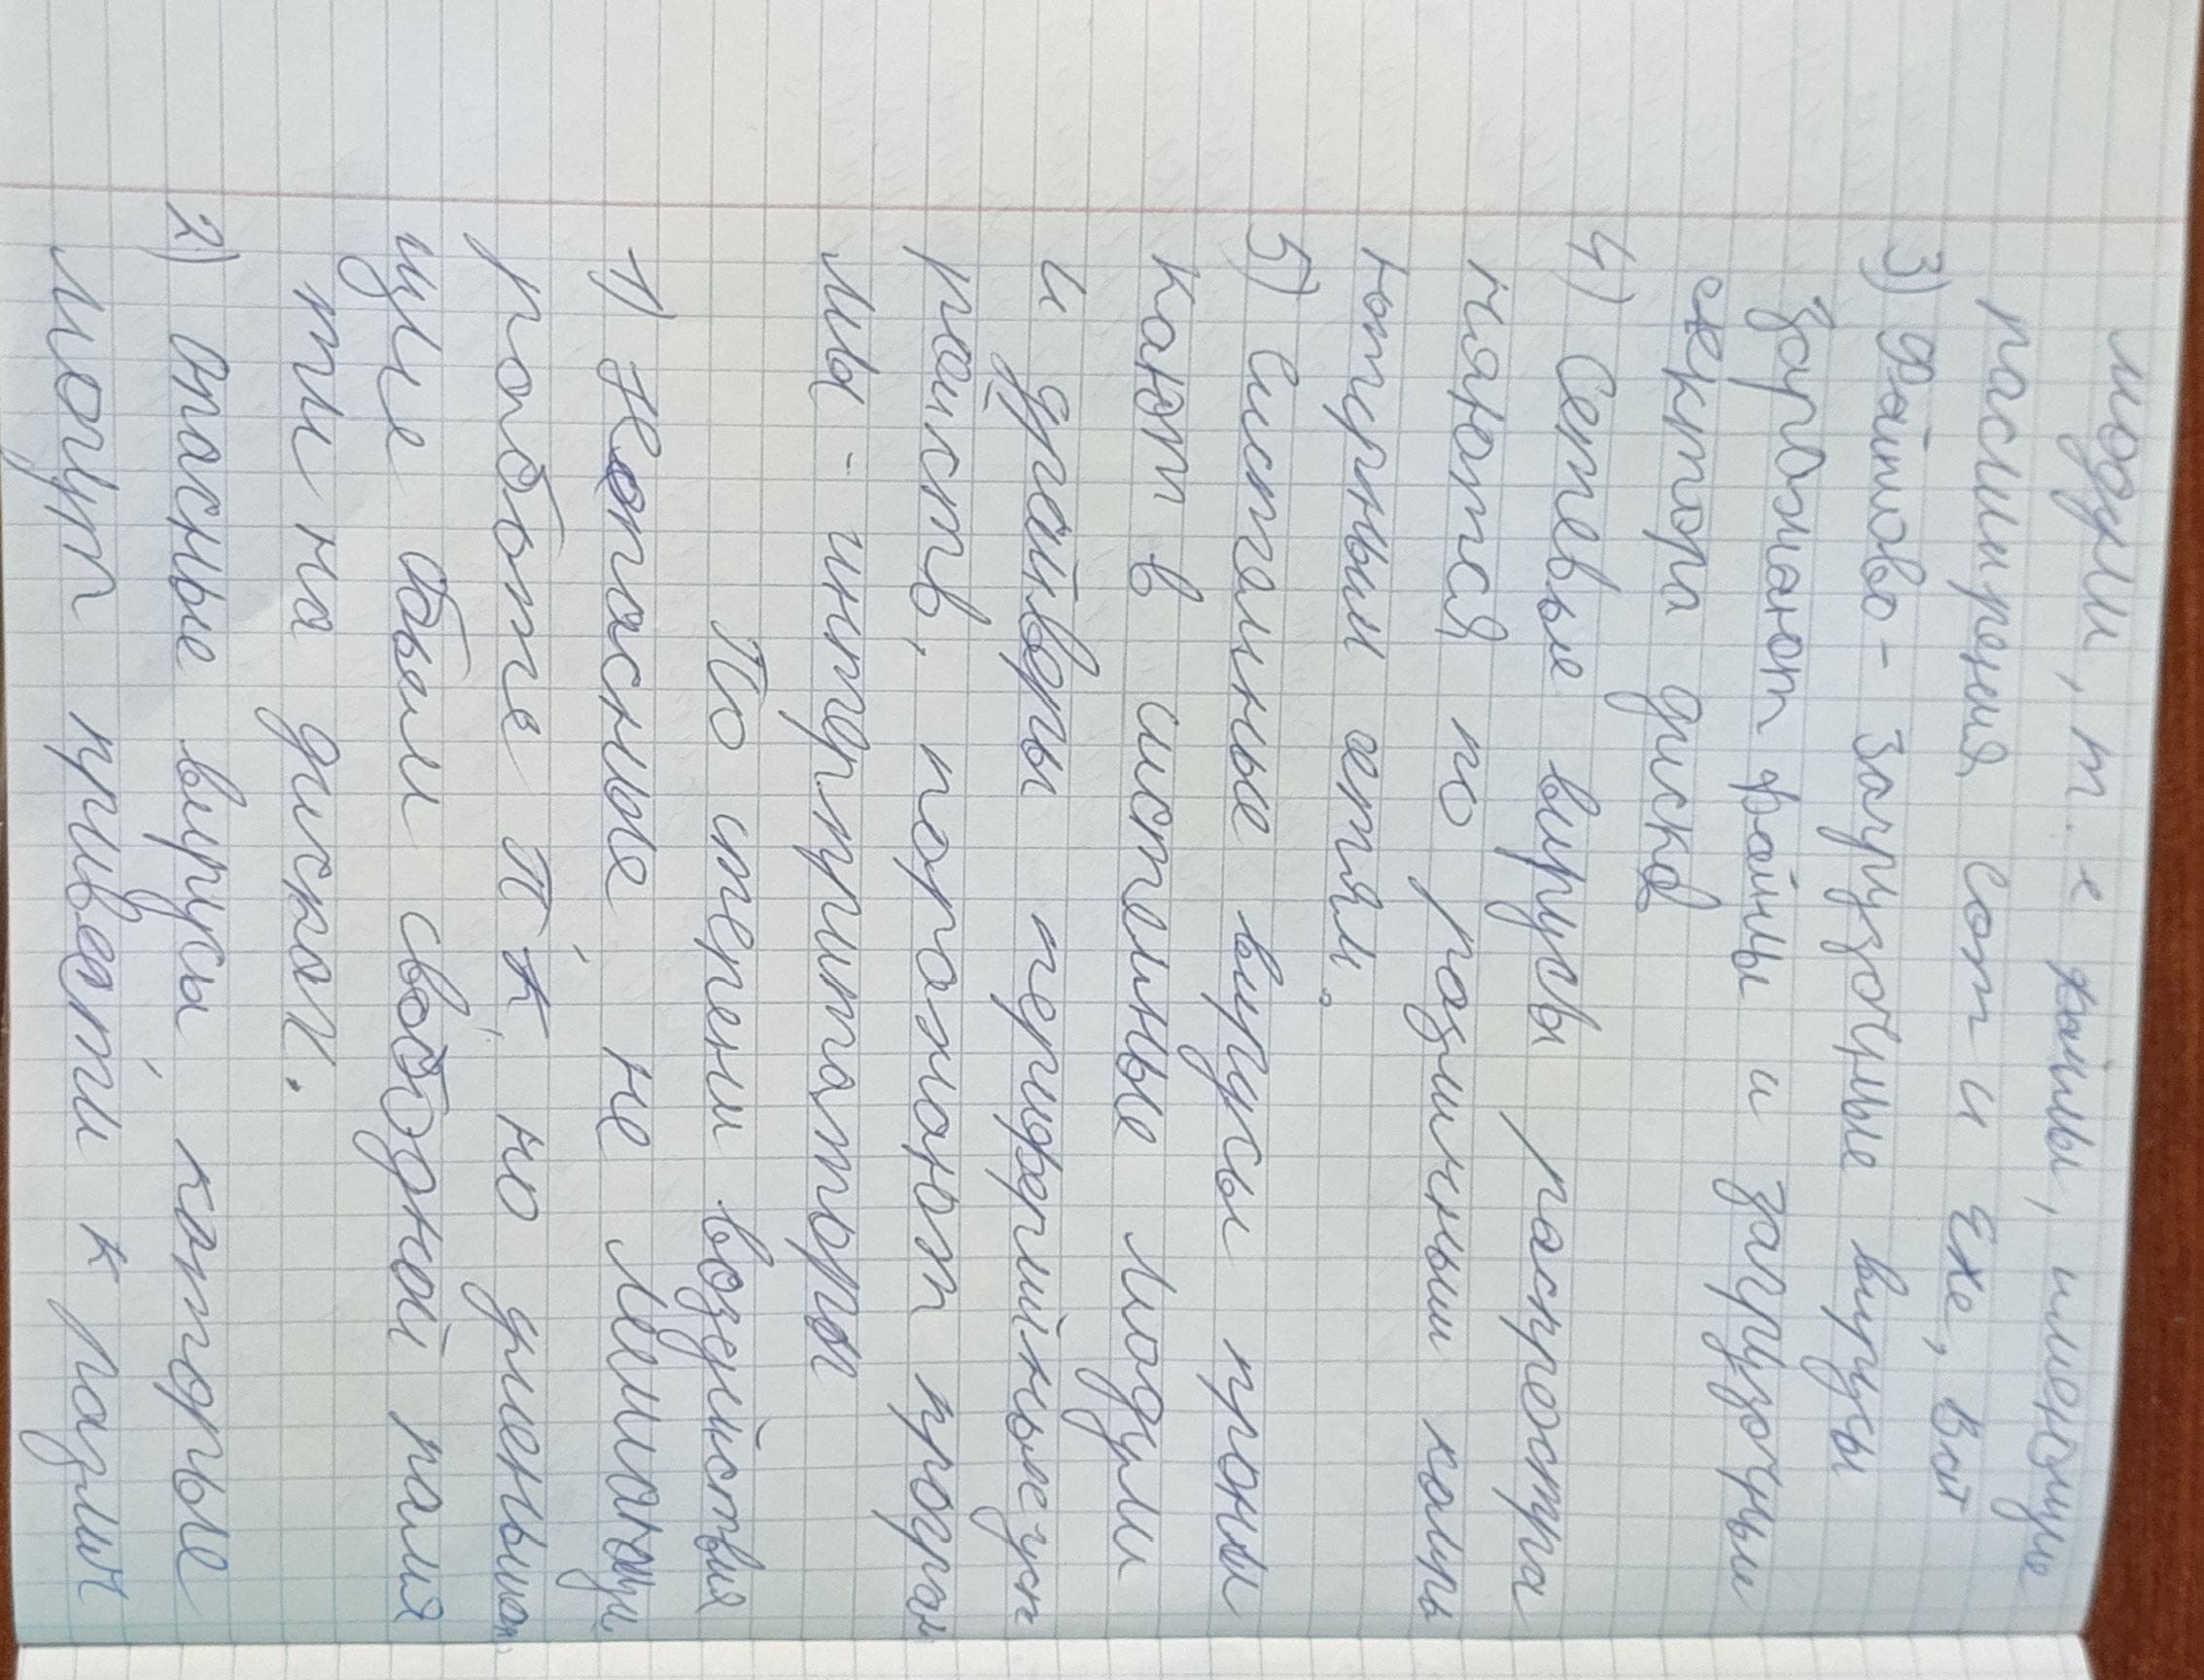 модули, т. е файлы, имеющие
расширения com и exe, bat
3) Файлово - загрузочные вирусы
заражают файлы и загрузочные
сектора дисков
4) Сетевые вирусы распростра
няются по различным комп
ютерным сетям.
5) Системные вирусы прони
кают в системные модули
и драйверы периферийных уст
ройств, поражают програм
мы - интерпритаторы
По степени воздействия
1) Неопасные не мешающие
работе ПК, но уменьшаю
щие обьем свободной памя
ти на дисках.
2) Опасные вирусы, которые
могут привести к различ